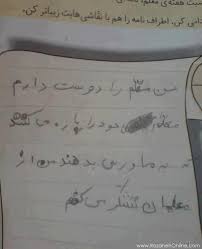 کن. اطراف نامه را هم با نقاشی‌هایت زیباتر کن.
من معلم را دوست دارم
معلم خود را پاره می کند
که به ما درس بدهند من از
معلمان تشکر می کنم
www.RozanehOnline.com